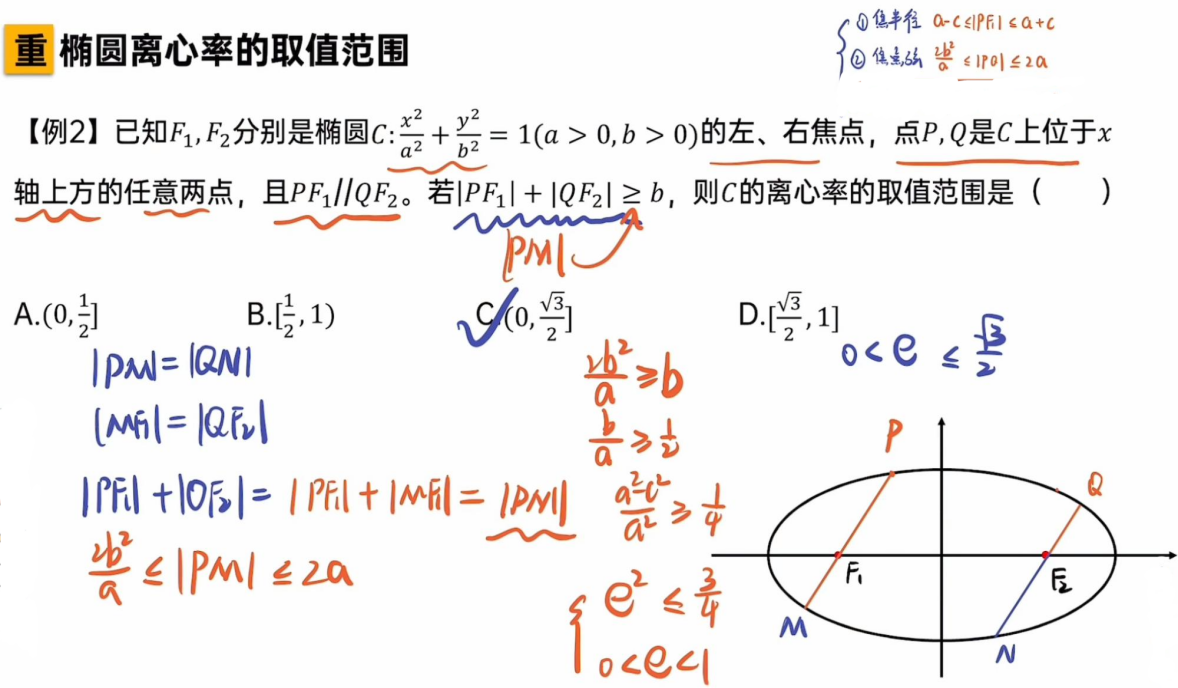 重 椭圆离心率的取值范围
① 焦半径 a-c≤|PF₁|≤a+c
② 焦点弦 2b²/a ≤|PQ|≤2a
【例2】已知F₁,F₂分别是椭圆C:x²/a²+y²/b²=1(a>0,b>0)的左、右焦点，点P,Q是C上位于x
轴上方的任意两点，且PF₁//QF₂。若|PF₁|+|QF₂|≥b，则C的离心率的取值范围是（ ）
|PM|
A.(0,1/2] B.[1/2,1) C.(0,√3/2] D.[√3/2,1]
0<e≤√3/2
|PM|=|QN|
|MF₁|=|QF₂|
|PF₁|+|QF₂|=|PF₁|+|MF₁|=|PM|
2b²/a≤|PM|≤2a
2b²/a≥b
b/a≥1/2
a²-c²/a²≥1/4
e²≤3/4
0<e<1
P
Q
F₁
F₂
M
N